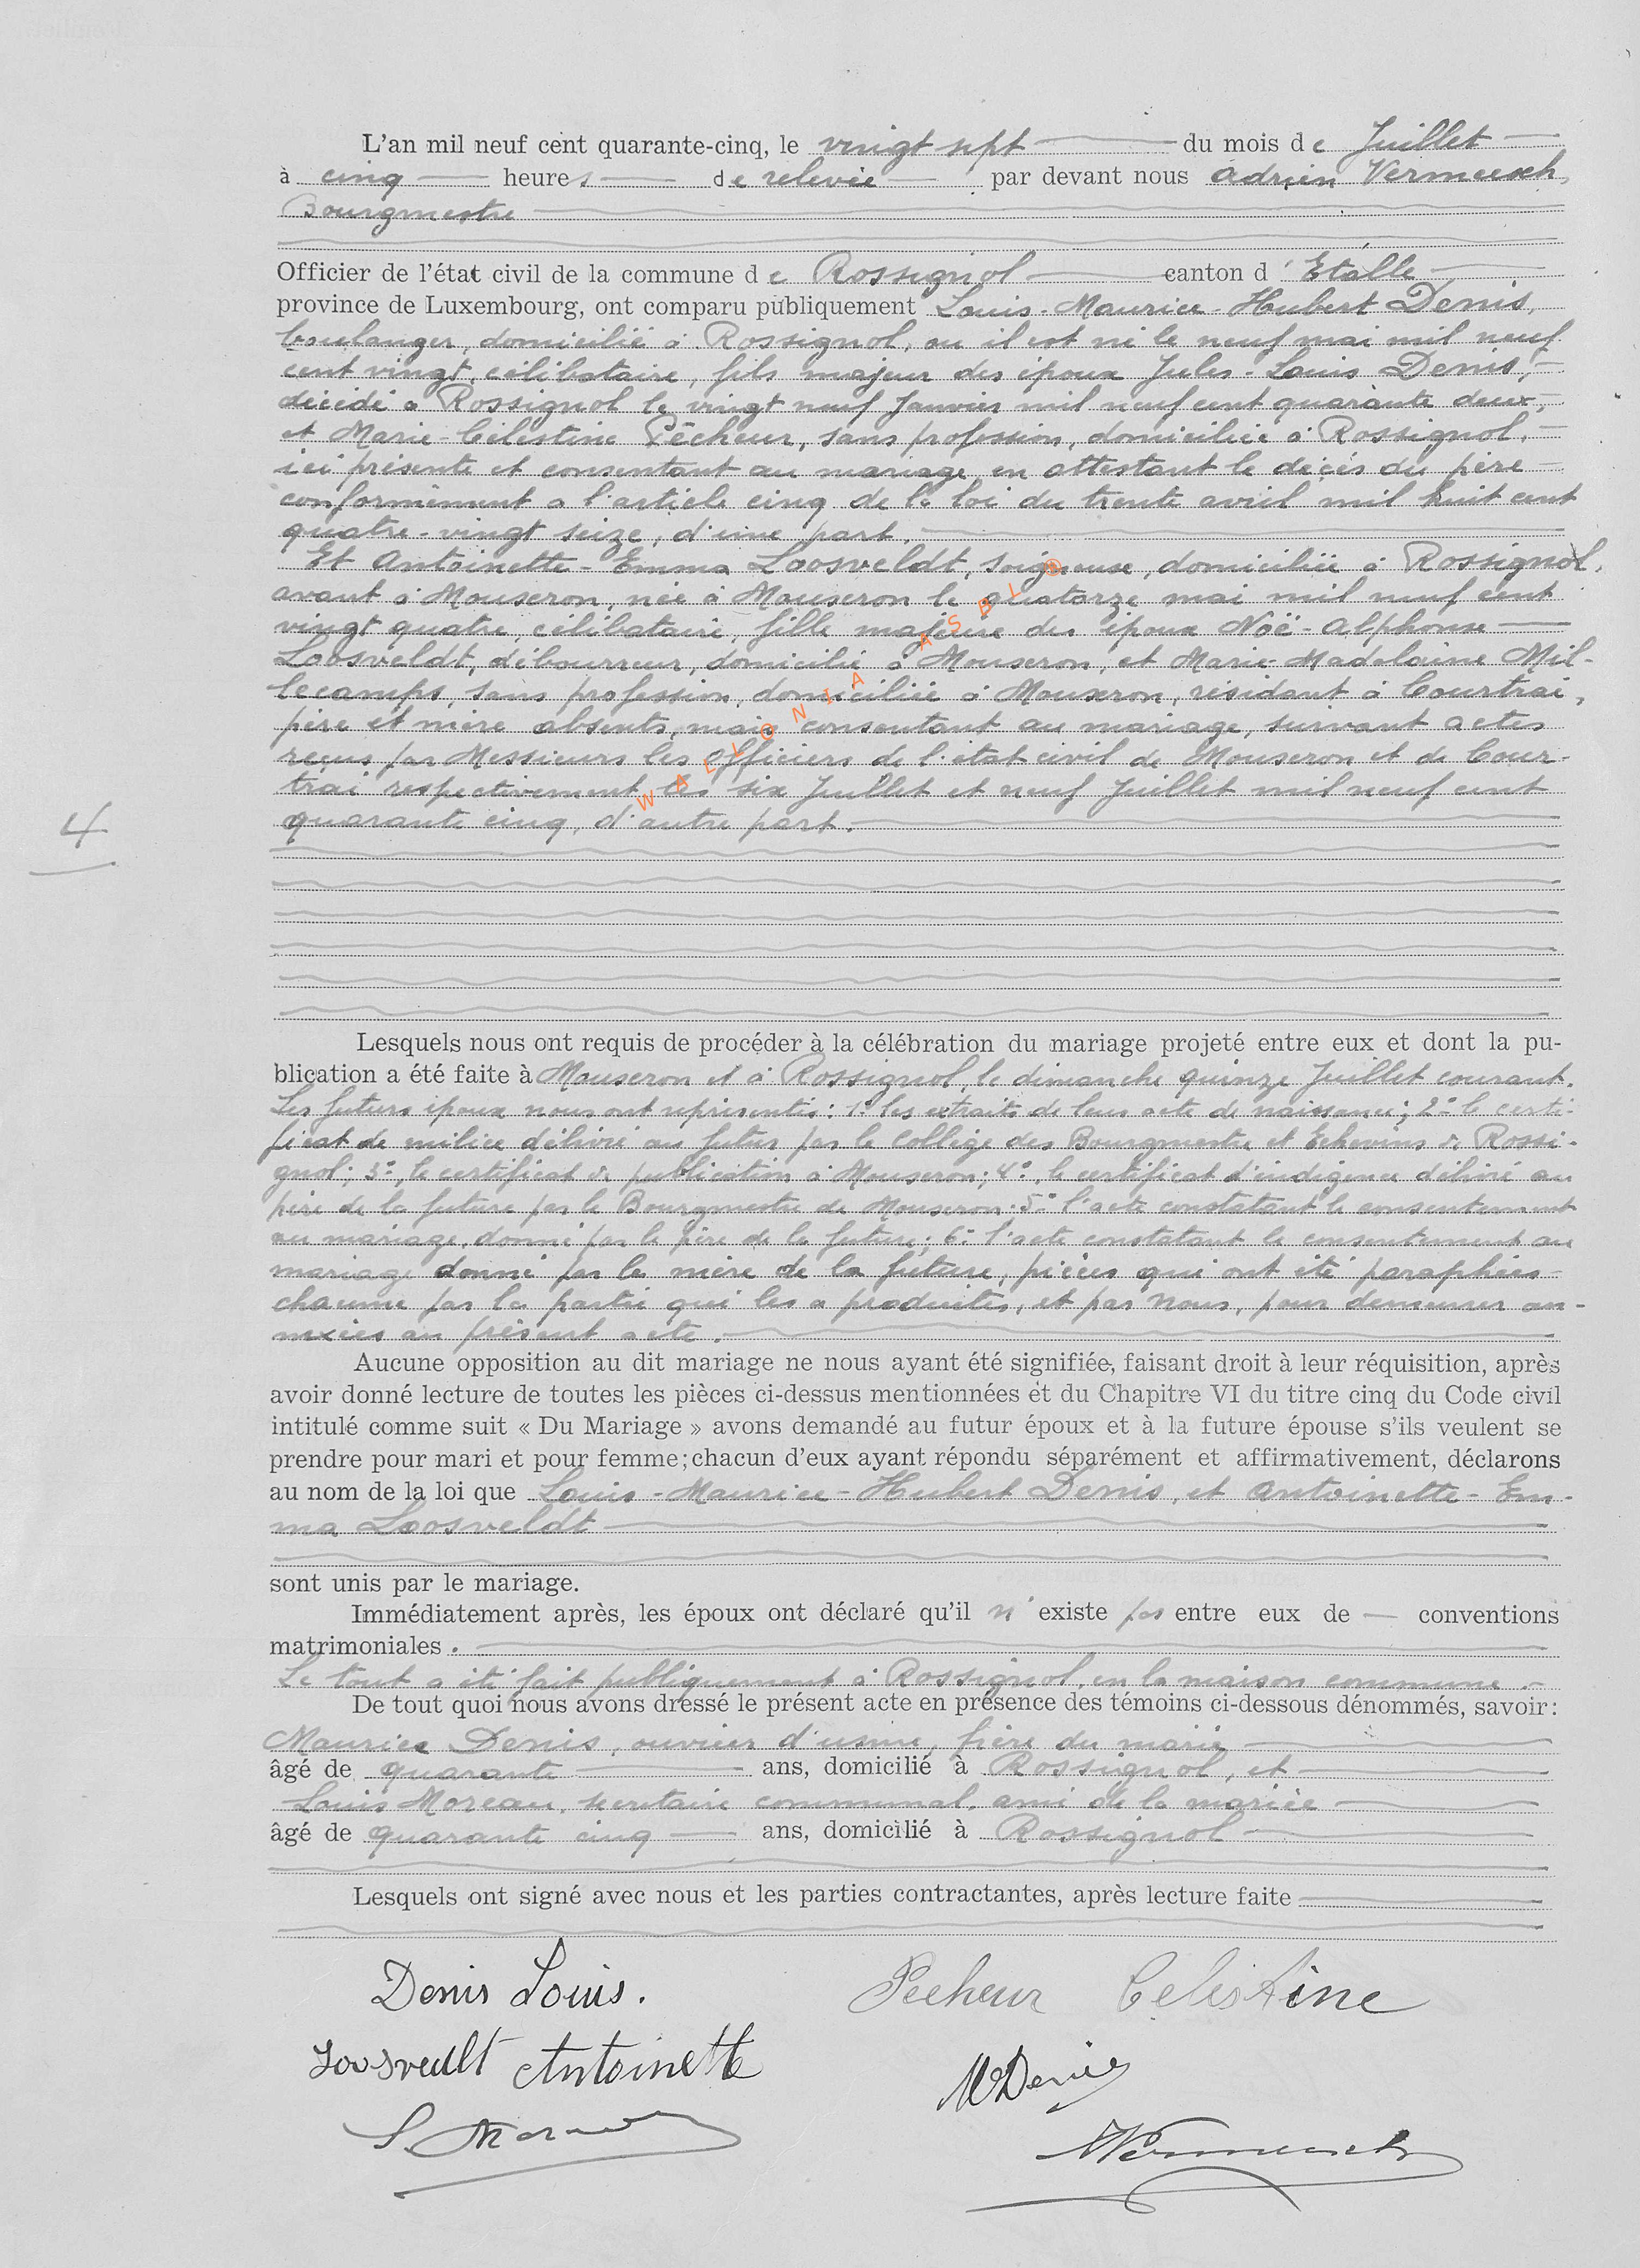 L'an mil neuf cent quarante-cinq, le vingt sept du mois de Juillet
à cinq heures de relevée par devant nous Adrien Vermeersch,
Bourgmestre
Officier de l'état civil de la commune de Rossignol canton d'Etalle
province de Luxembourg, ont comparu publiquement Louis-Maurice-Hubert Denis,
boulanger, domicilié à Rossignol, où il est né le neuf mai mil neuf
cent vingt, célibataire, fils majeur des époux Jules-Louis Denis,
décédé à Rossignol le vingt neuf Janvier mil neuf cent quarante deux,
et Marie-Célestine Pêcheur, sans profession, domiciliée à Rossignol,
ici présente et consentant au mariage en attestant le décès du père
conformément à l'article cinq de la loi du trente avril mil huit cent
quatre-vingt seize, d'une part.
Et Antoinette-Emma Loosveldt, soigneuse, domiciliée à Rossignol,
avant à Mouscron, née à Mouscron le quatorze mai mil neuf cent
vingt quatre, célibataire, fille majeure des époux Noë-Alphonse
Loosveldt, débourreur, domicilié à Mouscron, et Marie-Madelaine Mil-
lecamps, sans profession, domiciliée à Mouscron, résidant à Courtrai,
père et mère absents, mais consentant au mariage, suivant actes
reçus par Messieurs les officiers de l'état civil de Mouscron et de Cour-
trai respectivement les six Juillet et neuf Juillet mil neuf cent
quarante cinq, d'autre part.
WALLONIA ASBL ®
4
Lesquels nous ont requis de procéder à la célébration du mariage projeté entre eux et dont la pu-
blication a été faite à Mouscron et à Rossignol, le dimanche quinze Juillet courant.
Les futurs époux nous ont représentés: 1° les extraits de leur acte de naissance; 2° le certi-
ficat de milice délivré au futur par le Collège des Bourgmestre et Echevins de Rossi-
gnol; 3° le certificat de publication à Mouscron; 4° le certificat d'indigence délivré au
père de la future par le Bourgmestre de Mouscron; 5° l'acte constatant le consentement
au mariage donné par le père de la future; 6° l'acte constatant le consentement au
mariage donné par la mère de la future, pièces qui ont été paraphées
chacune par la partie qui les a produites, et par nous, pour demeurer an-
nexées au présent acte.
Aucune opposition au dit mariage ne nous ayant été signifiée, faisant droit à leur réquisition, après
avoir donné lecture de toutes les pièces ci-dessus mentionnées et du Chapitre VI du titre cinq du Code civil
intitulé comme suit « Du Mariage » avons demandé au futur époux et à la future épouse s'ils veulent se
prendre pour mari et pour femme; chacun d'eux ayant répondu séparément et affirmativement, déclarons
au nom de la loi que Louis-Maurice-Hubert Denis, et Antoinette-Em-
ma Loosveldt
sont unis par le mariage.
Immédiatement après, les époux ont déclaré qu'il n'existe pas entre eux de — conventions
matrimoniales.
Le tout a été fait publiquement à Rossignol, en la maison commune.
De tout quoi nous avons dressé le présent acte en présence des témoins ci-dessous dénommés, savoir:
Maurice Denis, ouvrier d'usine, frère du marié
âgé de quarante ans, domicilié à Rossignol, et
Louis Moreau, secrétaire communal, ami de la mariée
âgé de quarante cinq ans, domicilié à Rossignol
Lesquels ont signé avec nous et les parties contractantes, après lecture faite
Denis Louis. Pecheur Celestine
Loosveldt Antoinette MDenis
L. Moreau AVermeersch